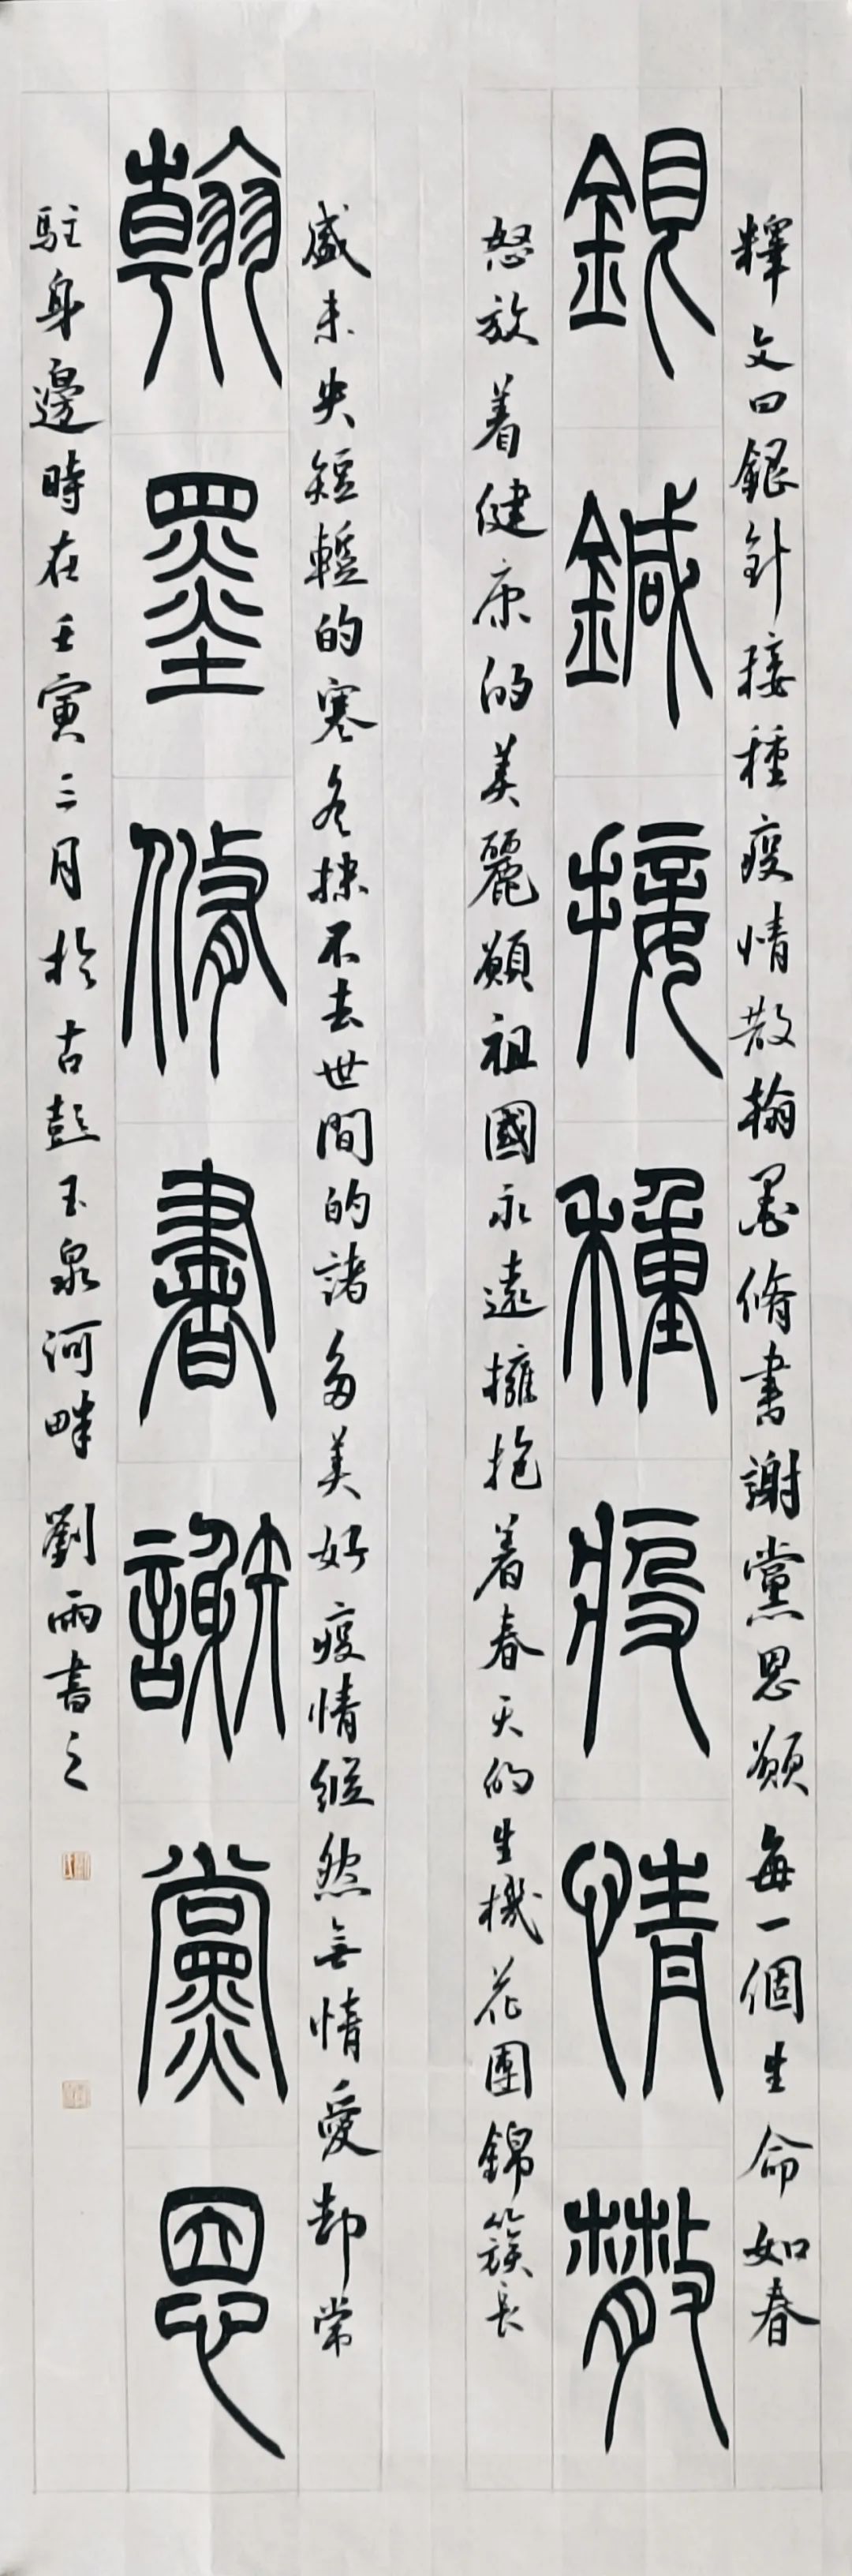 釋文曰銀針接種疫情散翰墨脩書謝黨恩願每一個生命如春
銀鍼接種疫情散
怒放着健康的美麗願祖國永遠擁抱着春天的生機花團錦簇長
盛未央短暫的寒冬抹不去世間的諸多美好疫情縱然無情愛却常
翰墨脩書謝黨恩
駐身邊時在壬寅三月於古彭玉泉河畔劉雨書之